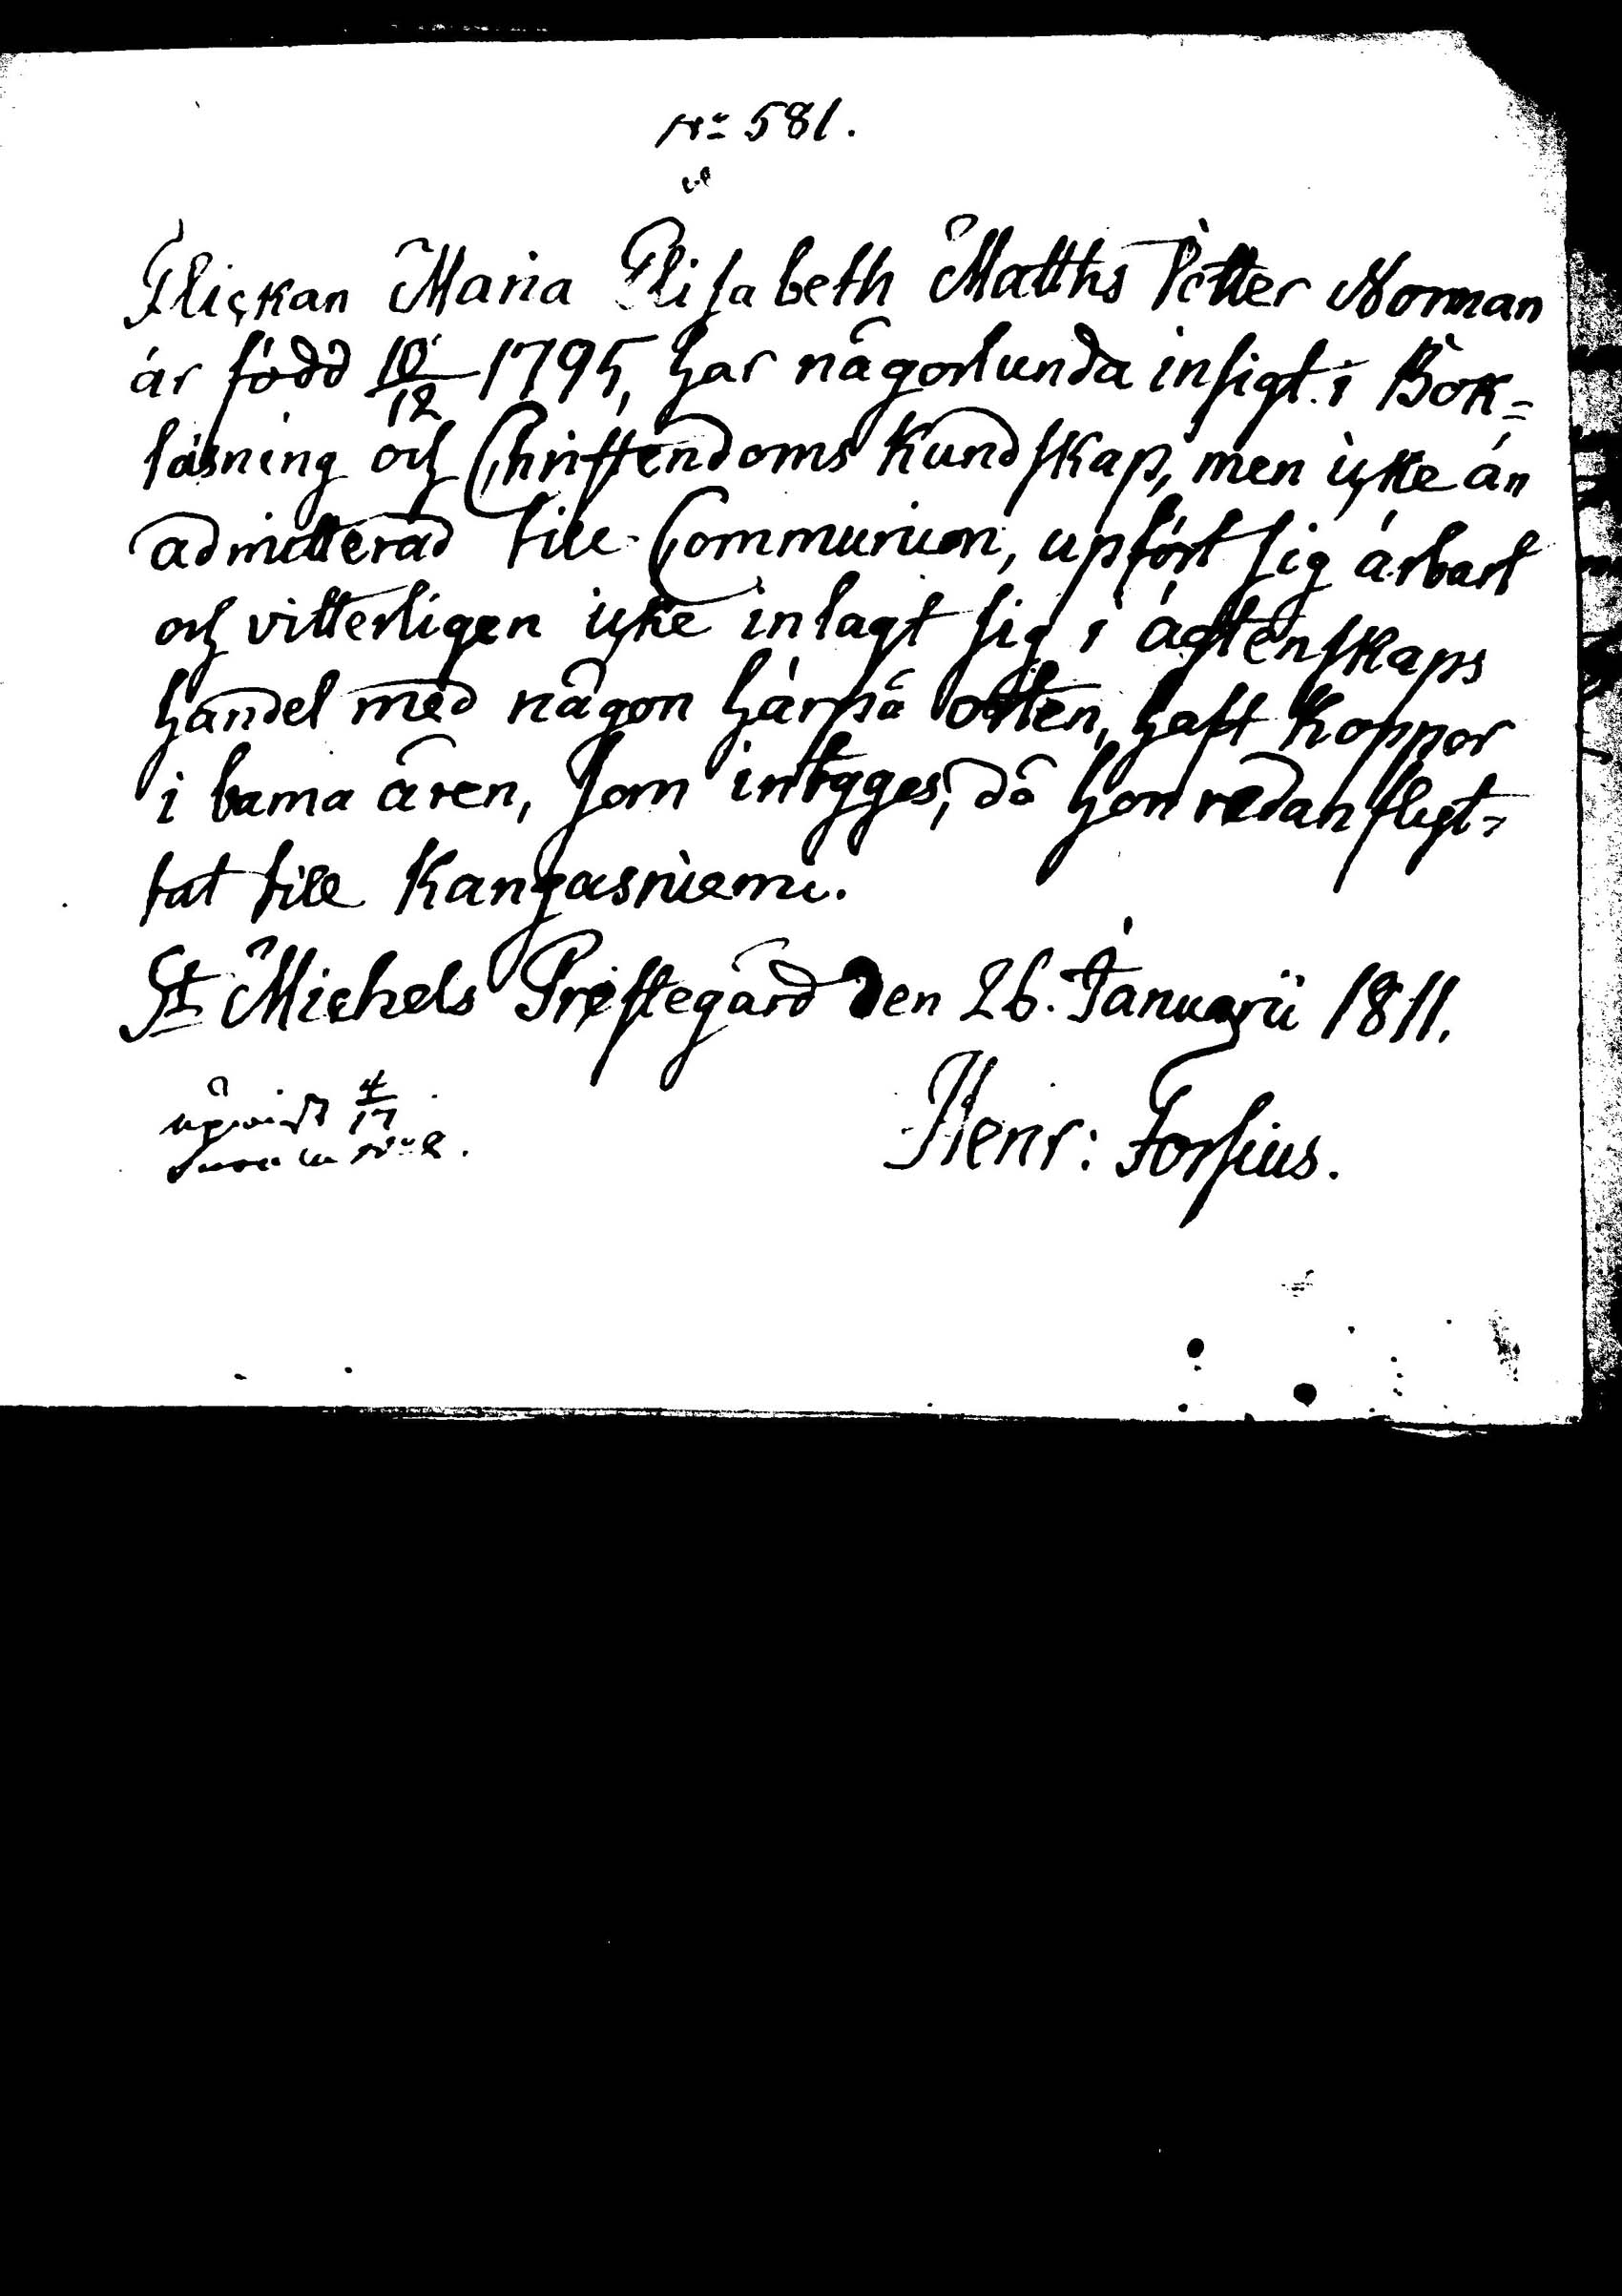 No 581.
Flickan Maria Elisabeth Matths Petter Norman
är född 10/12 1795, har någorlunda insigt i Bok=
läsning och Christendoms Kundskap, men icke än
admitterad till Communion, upfört sig ärbart
och vitterligen icke inlagt sig i ägtenskaps
handel med någon härpå orten, haft Koppor
i barna åren, som intygges, då hon redan flyt=
tat till Kangasniemi.
St Michels Prestegård den 26. Januarii 1811.
Henr: Forsius.